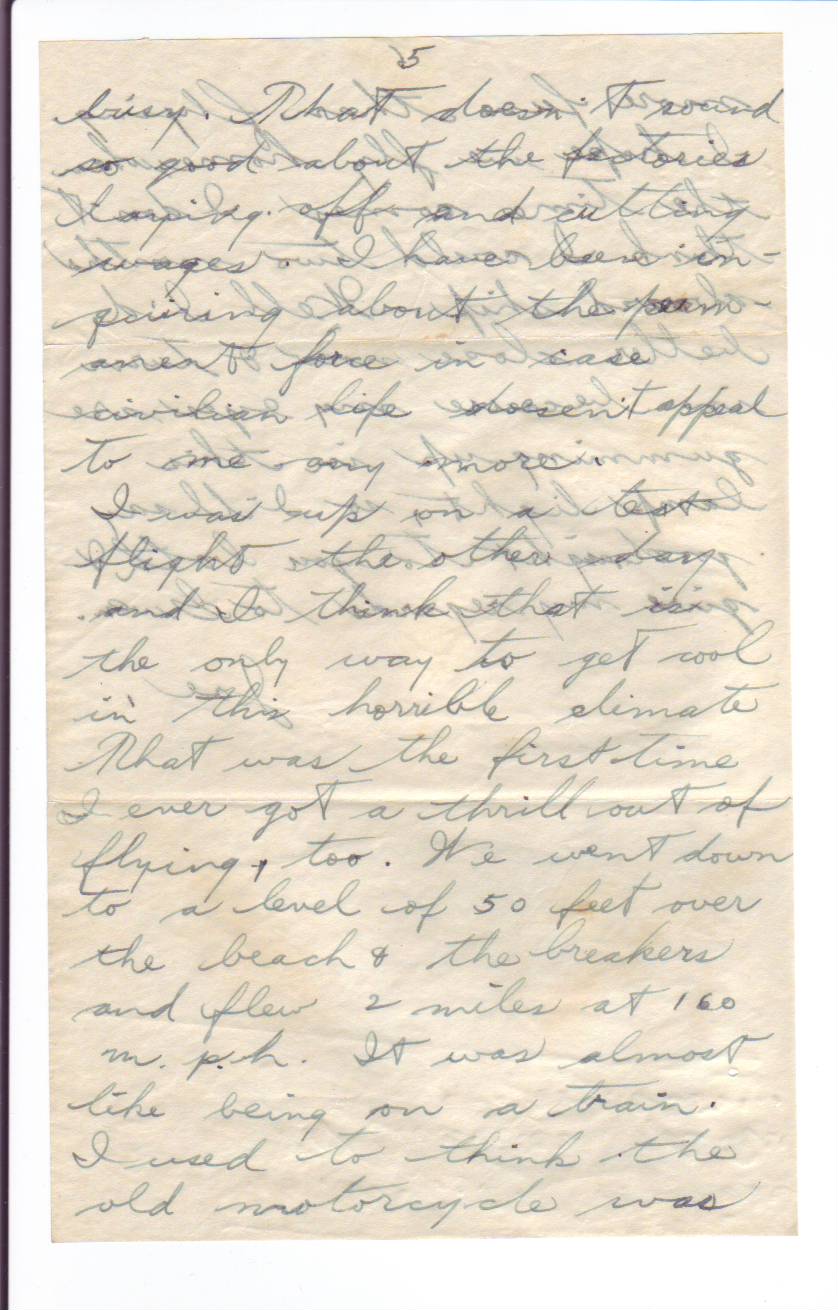 5
busy. That doesn't sound
so good about the factories
laying off and cutting
wages. I have been in-
quiring about the perm-
anent force in case
civilian life doesn't appeal
to me any more.
I was up on a test
flight the other day
and I think that is
the only way to get cool
in this horrible climate
That was the first time
I ever got a thrill out of
flying, too. We went down
to a level of 50 feet over
the beach & the breakers
and flew 2 miles at 160
m.p.h. It was almost
like being on a train.
I used to think the
old motorcycle was